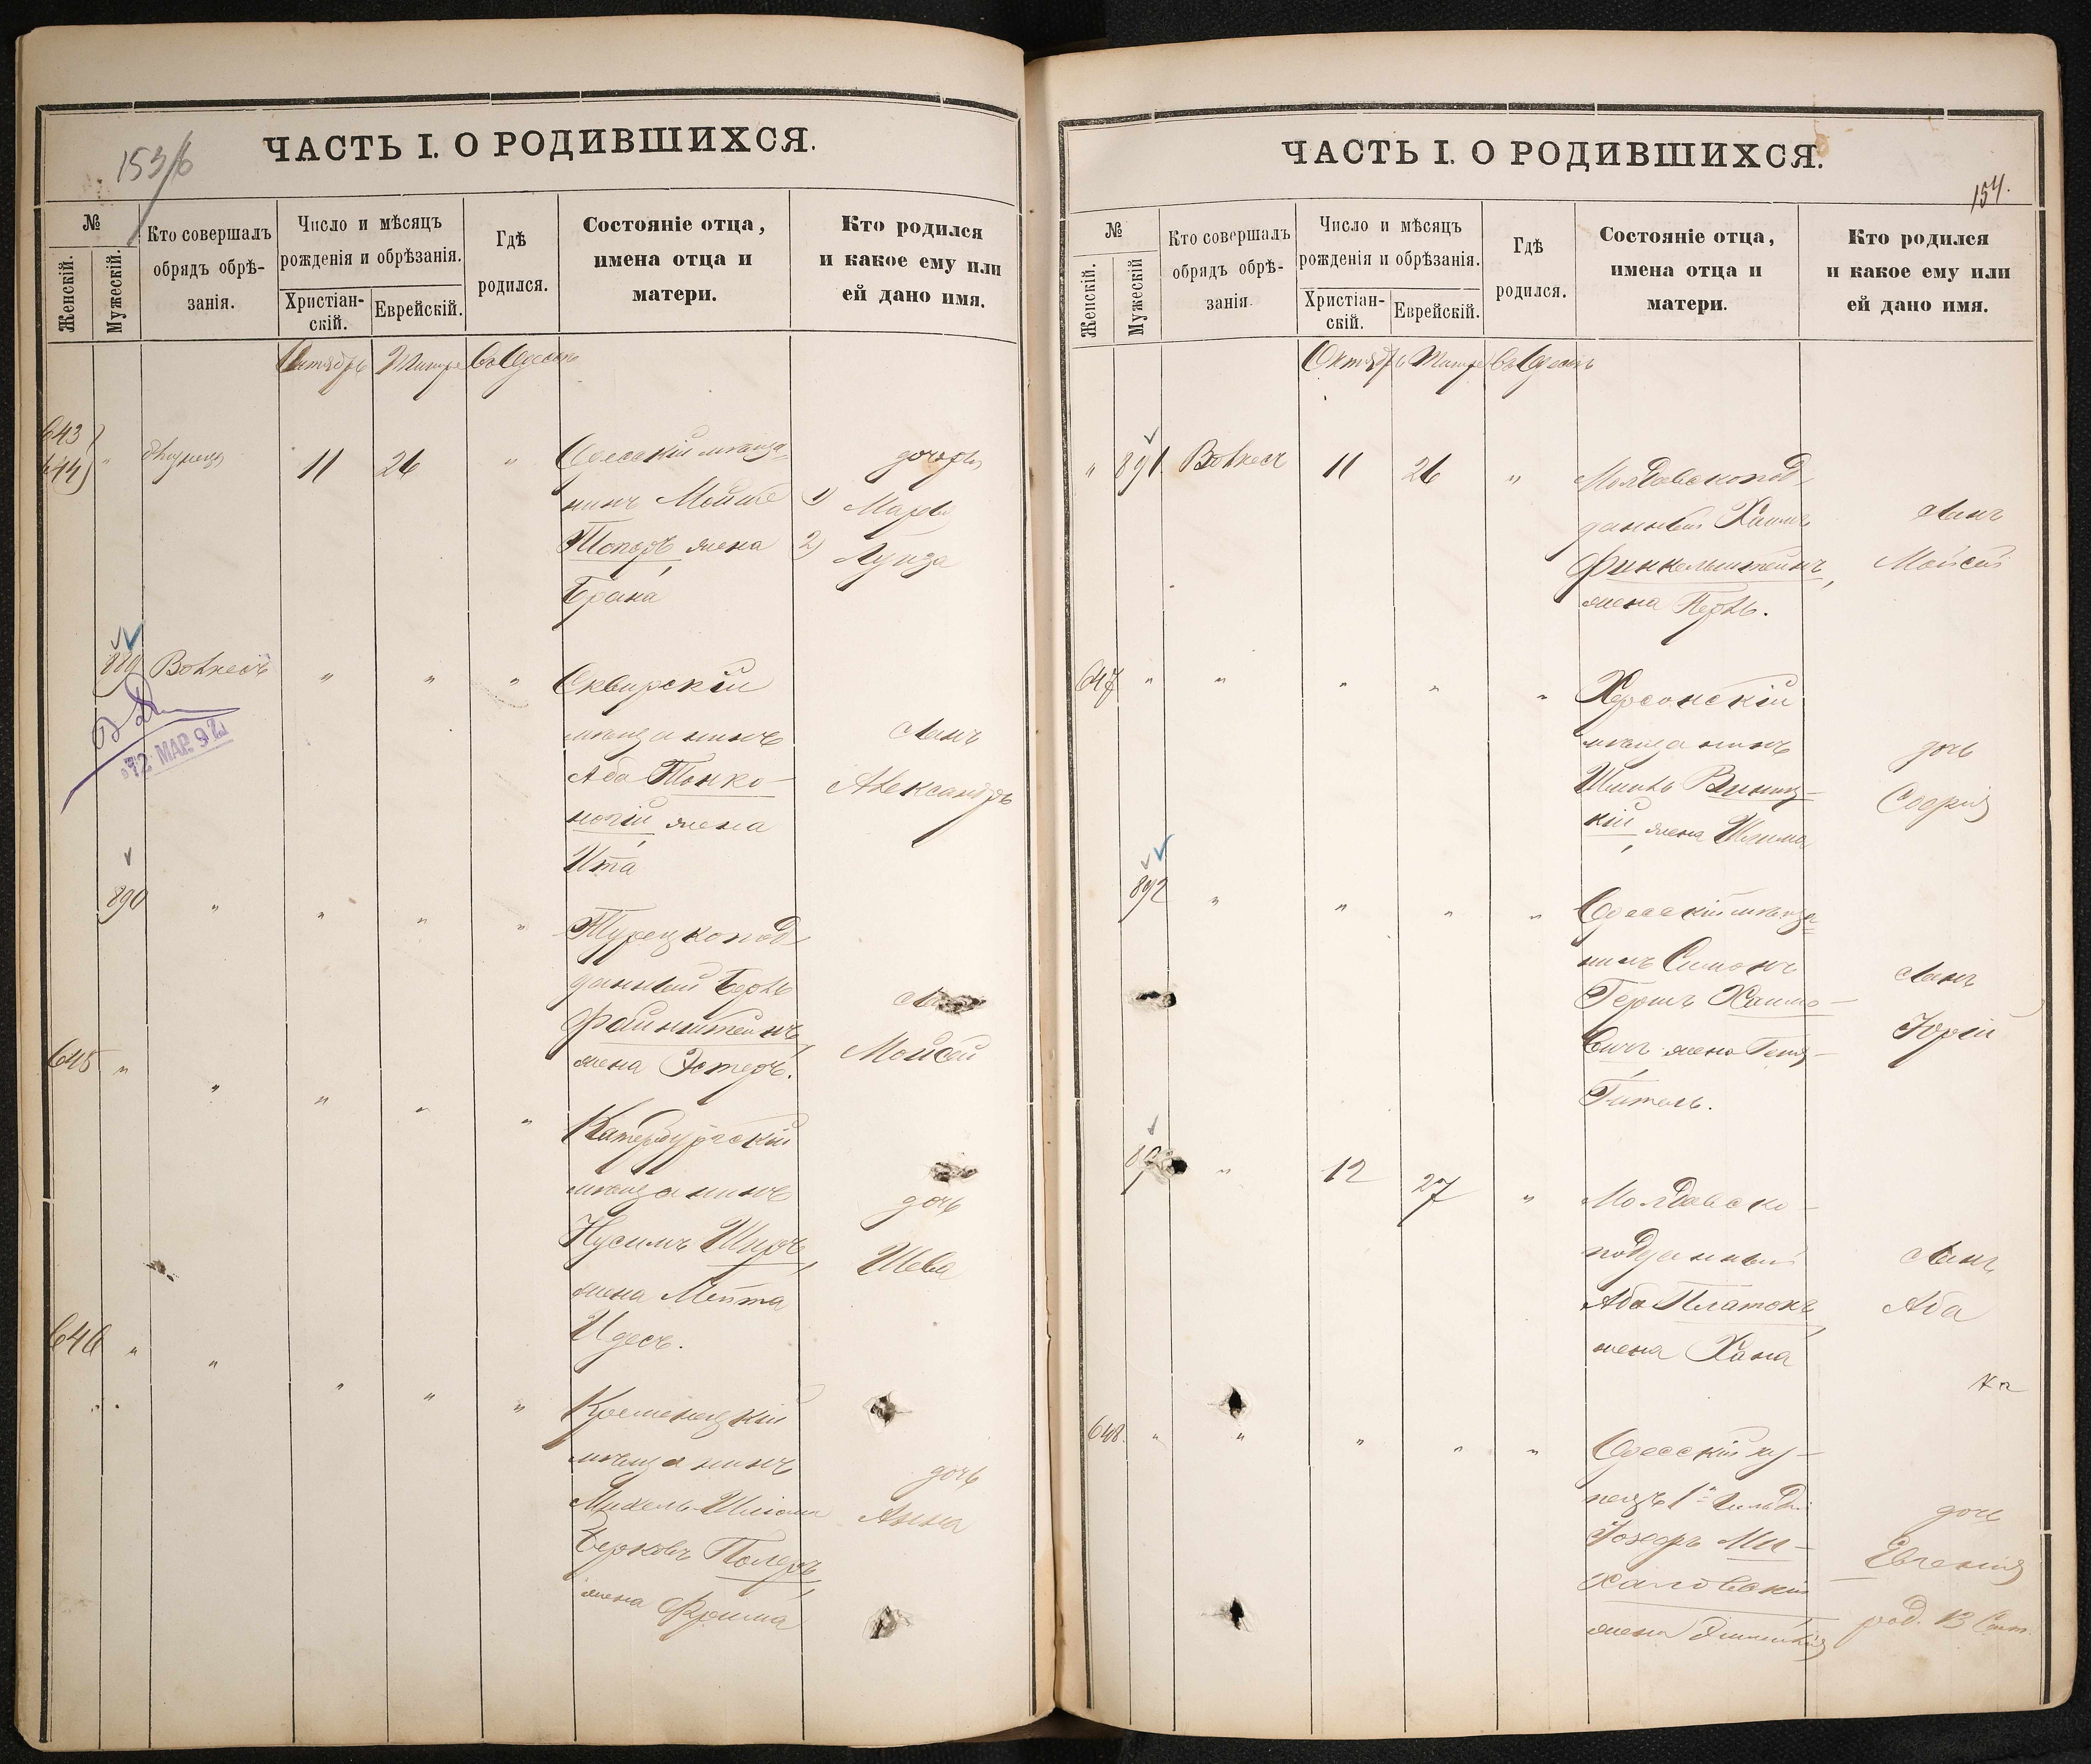 153/6
ЧАСТЬ I. О РОДИВШИХСЯ.
№
Женскій.
Мужескій.
Кто совершалъ
обрядъ обрѣ-
занія.
Число и мѣсяцъ
рожденія и обрѣзанія.
Христіан-
скій.
Еврейскій.
Гдѣ
родился.
Состояніе отца,
имена отца и
матери.
Кто родился
и какое ему или
ей дано имя.
Октябрь Тишре въ Одессѣ
643
644 " 11 26 " Одесскій мѣща-
нинъ Мойше
Топоръ, жена
Брана
дочери
1) Марья
2) Луиза
889 Волкесъ " " " Сквирскій
мѣщанинъ
Аба Тонко-
ногій, жена
Ита
сынъ
Александръ
12 МАР. 92
890 " " " " Турецкопод-
данный Берль
Файнштейнъ,
жена Эстеръ.
Мойсей
645 " " " " " Катербургскій
мѣщанинъ
Нусимъ Ширъ,
жена Мейта
Идесъ.
дочь
Шева
646 " " " " " Кременецкій
мѣщанинъ
Берковъ
жена Фрима
дочь
Анна
ЧАСТЬ I. О РОДИВШИХСЯ.
154.
№
Женскій.
Мужескій
Кто совершалъ
обрядъ обрѣ-
занія.
Число и мѣсяцъ
рожденія и обрѣзанія.
Христіан-
скій.
Еврейскій.
Гдѣ
родился.
Состояніе отца,
имена отца и
матери.
Кто родился
и какое ему или
ей дано имя.
Октябрь Тишре въ Одессѣ
" 891 Волкесъ 11 26 " Молдавскопод-
данный Хаимъ
Финкельштейнъ,
жена Перль.
сынъ
Мойсей
647 " " " " " Херсонскій
мѣщанинъ
Виниц-
кій, жена
дочь
Софія
892 " " " " Одесскій мѣща-
нинъ Симонъ
Гершъ Хаимо-
вичъ, жена
Гитель.
сынъ
Юрій
" 12 27 " Молдавско-
подданный
Аба Платокъ,
жена Хана
сынъ
Аба
648. " " " " " Одесскій ку-
пецъ 1й гильдіи
Іозефъ Ми-
халовскій
жена
дочь
Евгенія
род. 13 Сент.